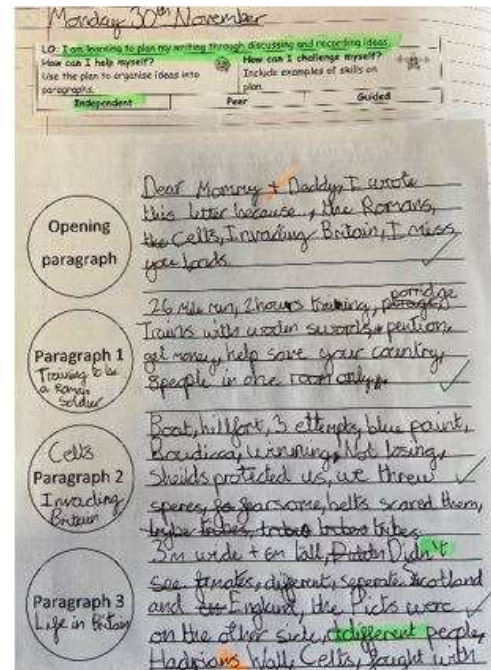 Monday 30th November
LO: I am learning to plan my writing through discussing and recording ideas.
How can I help myself?
Use the plan to organise ideas into
paragraphs.
How can I challenge myself?
Include examples of skills on
plan.
Independent Peer Guided
Opening
paragraph
Dear Mommy + Daddy, I wrote
this letter because, the Romans,
the Celts, Invading Britain, I miss
you loads
Paragraph 1
Training to be
a Roman
Soldier
26 mile run, 2 hours training, porridge
Trains with wooden swords + pention,
get money, help save your country,
8 people in one room only,
Celts
Paragraph 2
Invading
Britain
Boat, hillfort, 3 ettempts, blue paint,
Boudicca, winning, Not losing,
Sheilds protected us, we threw
speres, fearsome, belts scared them,
tribe tribes, tribes
Paragraph 3
Life in Britain
3m wide + 6m tall, Didn't
see, different, seperate Scotland
and England, the Picts were
on the other side, different people,
Hadrians Wall, Celts, fought with